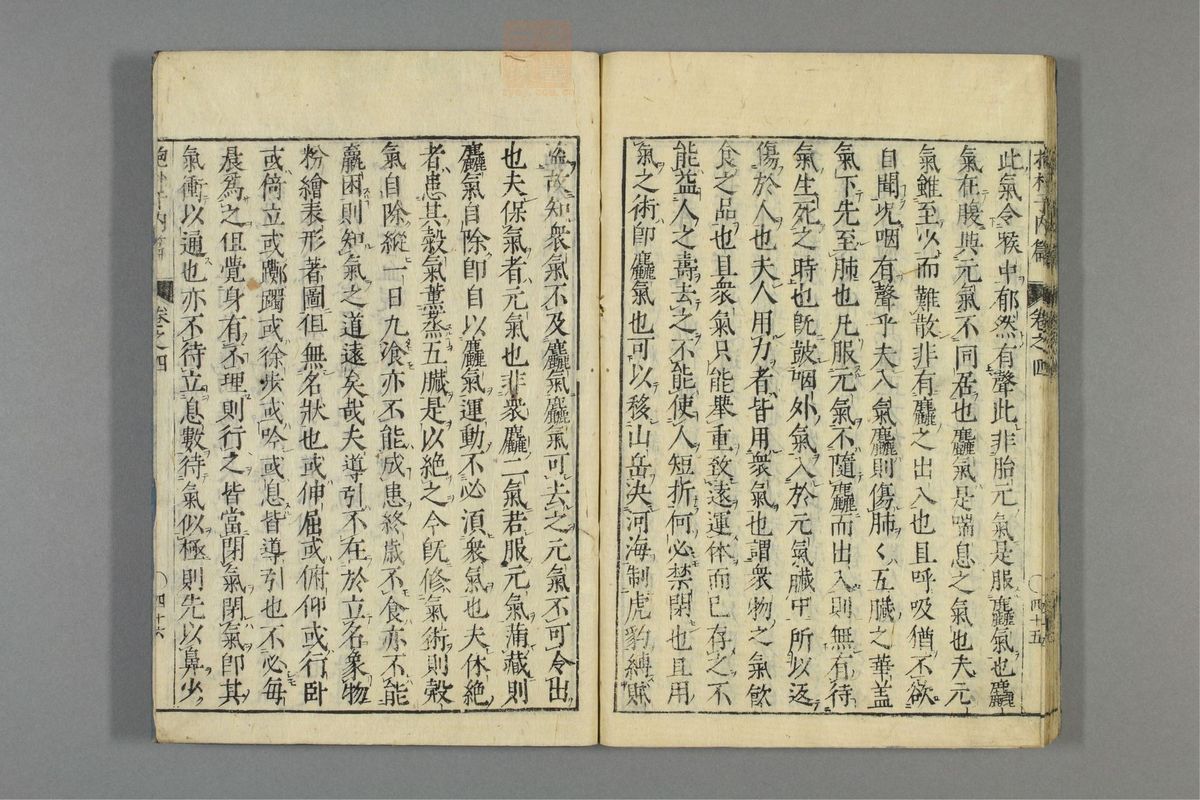 抱朴子內篇 卷之四 ○四十五
此氣令喉中郁然有聲此非胎元氣是服麤氣也麤
氣在腹與元氣不同居也麤氣是喘息之氣也夫元
氣雖至少而難散非有麤之出入也且呼吸猶不欲
自聞況咽有聲乎夫入氣麤則傷肺〱五臟之華蓋
氣下先至肺也凡服元氣不隨麤而出入則無有待
氣生死之時也既鼓咽外氣入於元氣臟中所以返
傷於人也夫人用力者皆用衆氣也謂衆物之氣飲
食之品也且衆氣只能舉重致遠運体而已存之不
能益人之壽去之不能使人短折何必禁閉也且用
氣之術即麤氣也可以移山岳決河海制虎豹縛賊
故知衆氣不及麤氣麤氣可去之元氣不可令出
也夫保氣者元氣也非衆麤二氣若服元氣滿藏則
麤氣自除即自以麤氣運動不必須衆氣也夫休絶
者患其穀氣薰蒸五臟是以絶之今既修氣術則穀
氣自除縱一日九飡亦不能成患終歲不食亦不能
羸困則知氣之道遠矣哉夫導引不在於立名象物
粉繪表形著圖但無名狀也或伸屈或俯仰或行卧
或倚立或躑躅或徐步或吟或息皆導引也不必每
晨爲之但覺身有不理則行之皆當閉氣閉氣即其
氣衝以通也亦不待立息數待氣似極則先以鼻少
卷之四 ○四十六